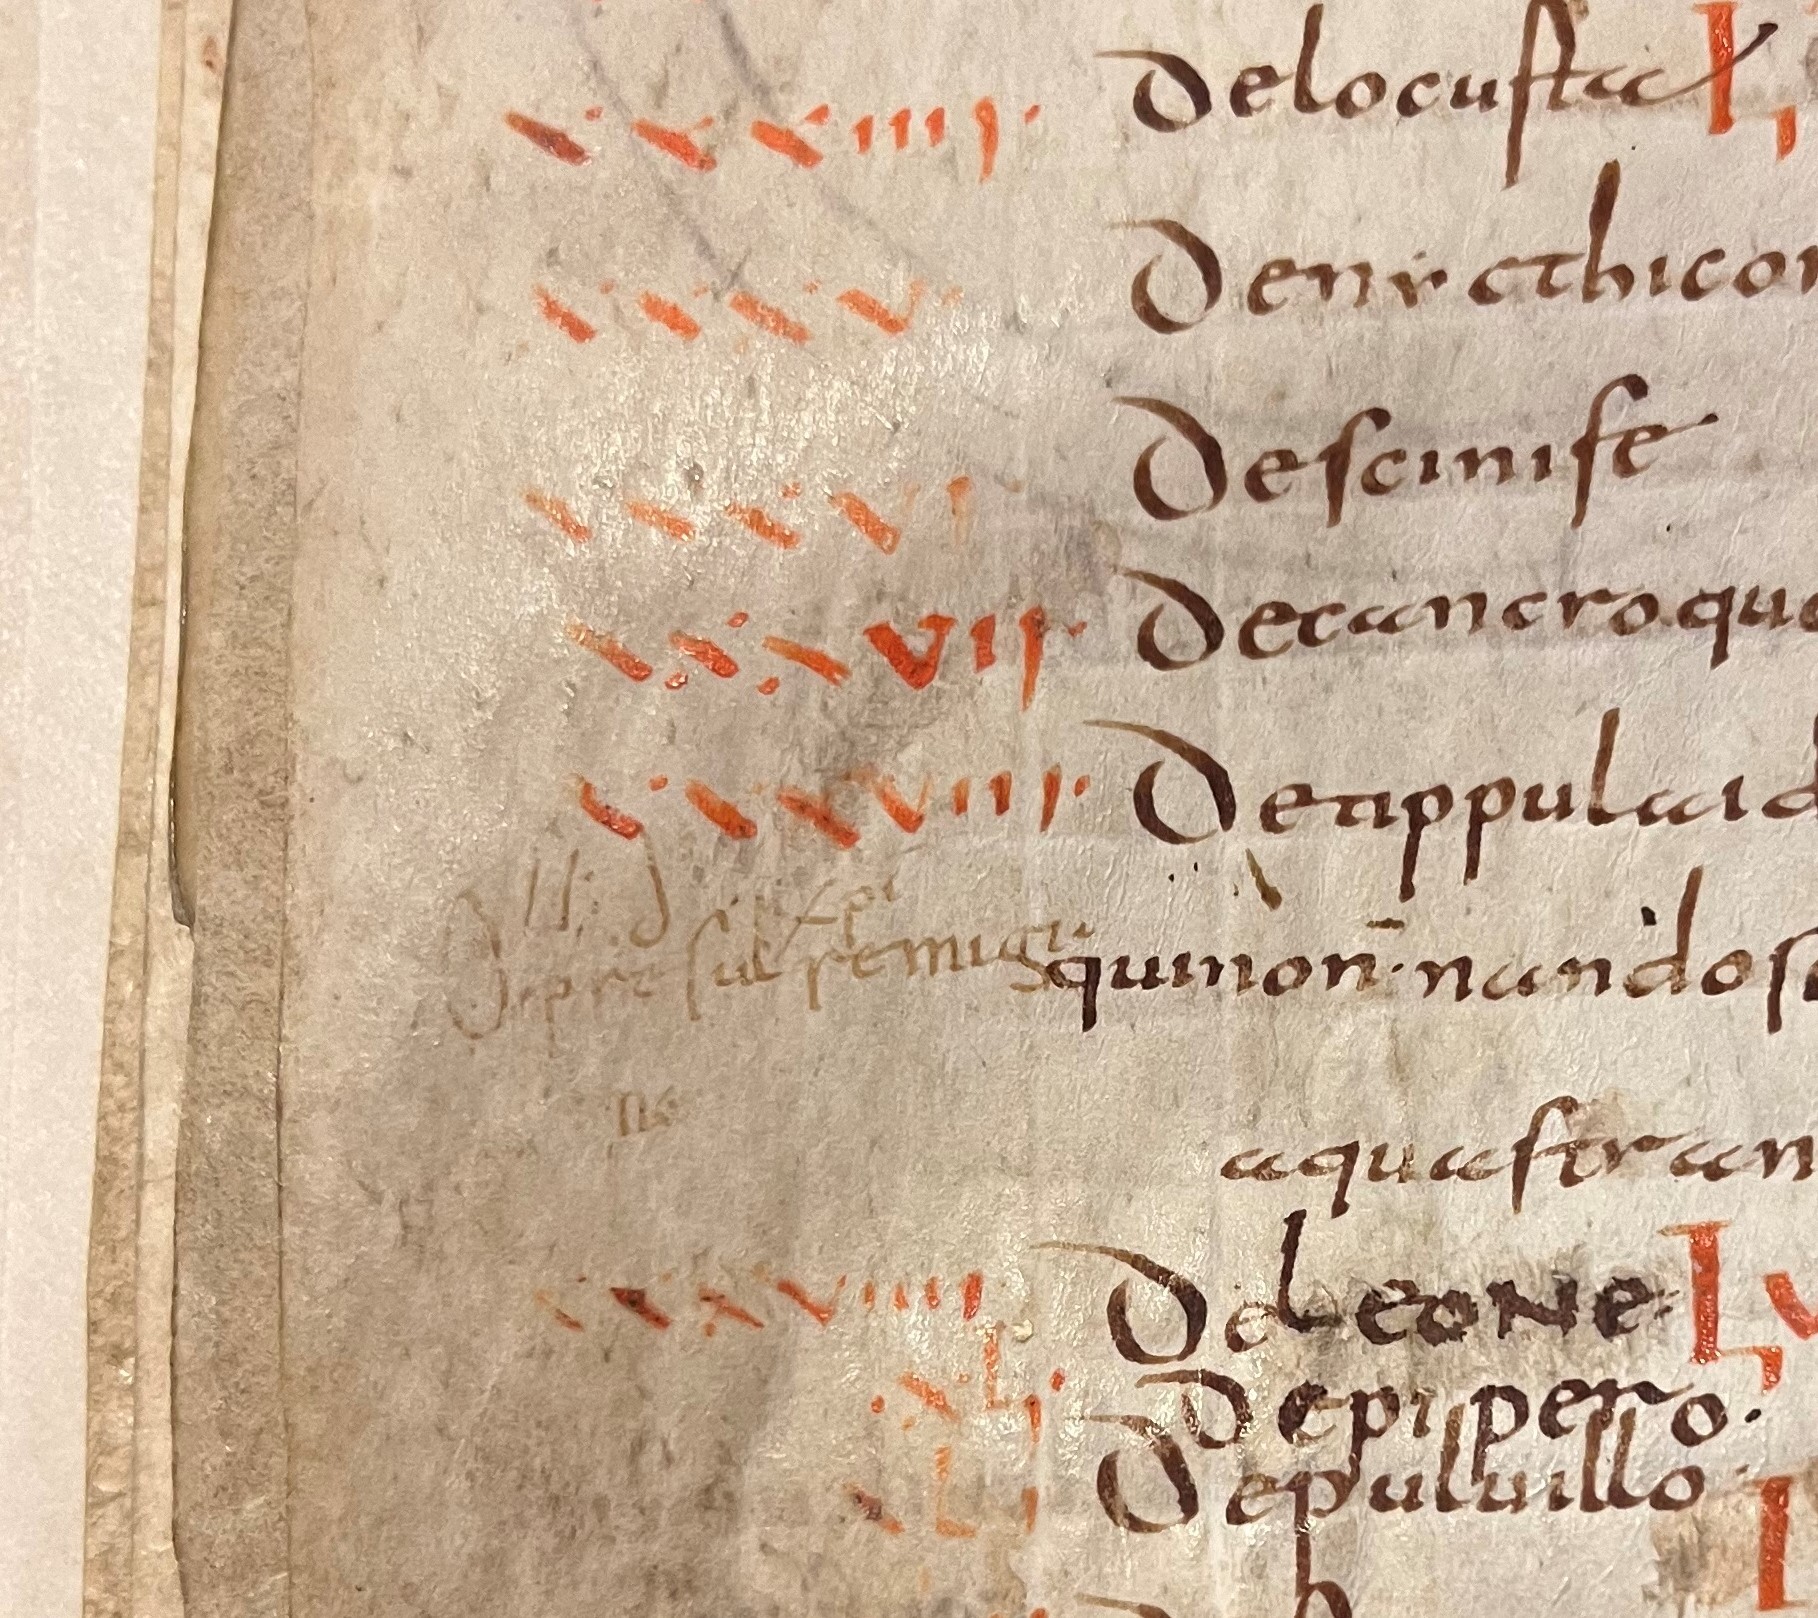 xxxiiii. De locusta L
xxxv. De nycthicor
xxxvi. De scinife
xxxvii. De cancro. qua
xxxviii. De tippula id
remigii qui non̄. nando s
ne
aquas tran
xxxviiii De leone. L
xl. De pipero.
xli De puluillo